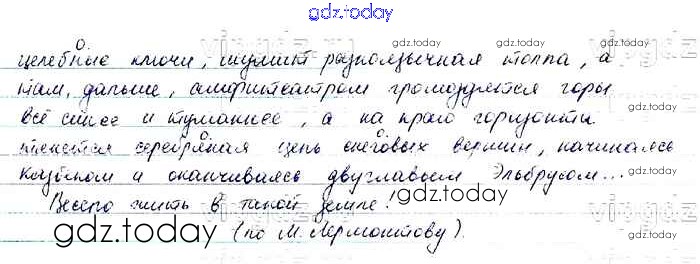 gdz.today
целебные ключи, шумит разноязычная толпа, а
там, дальше, амфитеатром громоздятся горы
всё синее и туманнее, а на краю горизонта
тянется серебряная цепь снеговых вершин, начинаясь
Казбеком и оканчиваясь двуглавым Эльбрусом...
Весело жить в такой земле!
(по М. Лермонтову).
gdz.today
gdz.today
gdz.today
gdz.today
gdz.today